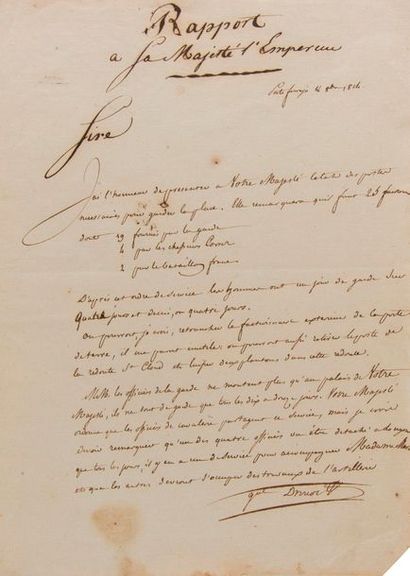 Rapport
a Sa Majesté l'Empereur
Porto ferrajo 4 8bre 1814
Sire
J'ai l'honneur de présenter a Votre Majesté l'état des postes
nécessaires pour garder la place. Elle remarquera qu'il faut 25 factionn
dont 19 fournis par la garde
4 par les chasseurs Corses
2 par le bataillon franc.
D'après cet ordre de service les hommes ont un jour de garde sur
quatre jours et demi, ou quatre jours.
On pourroit, je crois, retrancher le factionnaire exterieur de la porte
de terre, il me paroit inutile; on pourroit aussi retirer le poste de
la redoute St Cloud et laisser deux plantons dans cette redoute.
MM. les officiers de la garde ne montant plus qu'au palais de Votre
Majesté, ils ne sont de garde que tous les dix a douze jours. Votre Majesté
ordonne que les officiers de cavalerie partagent ce service, mais je crois
devoir remarquer qu'un des quatre officiers va être détaché a
que tous les jours, il y en a un de service pour accompagner Madame
et que les autres devront s'occuper des travaux de l'artillerie
gal Drouot